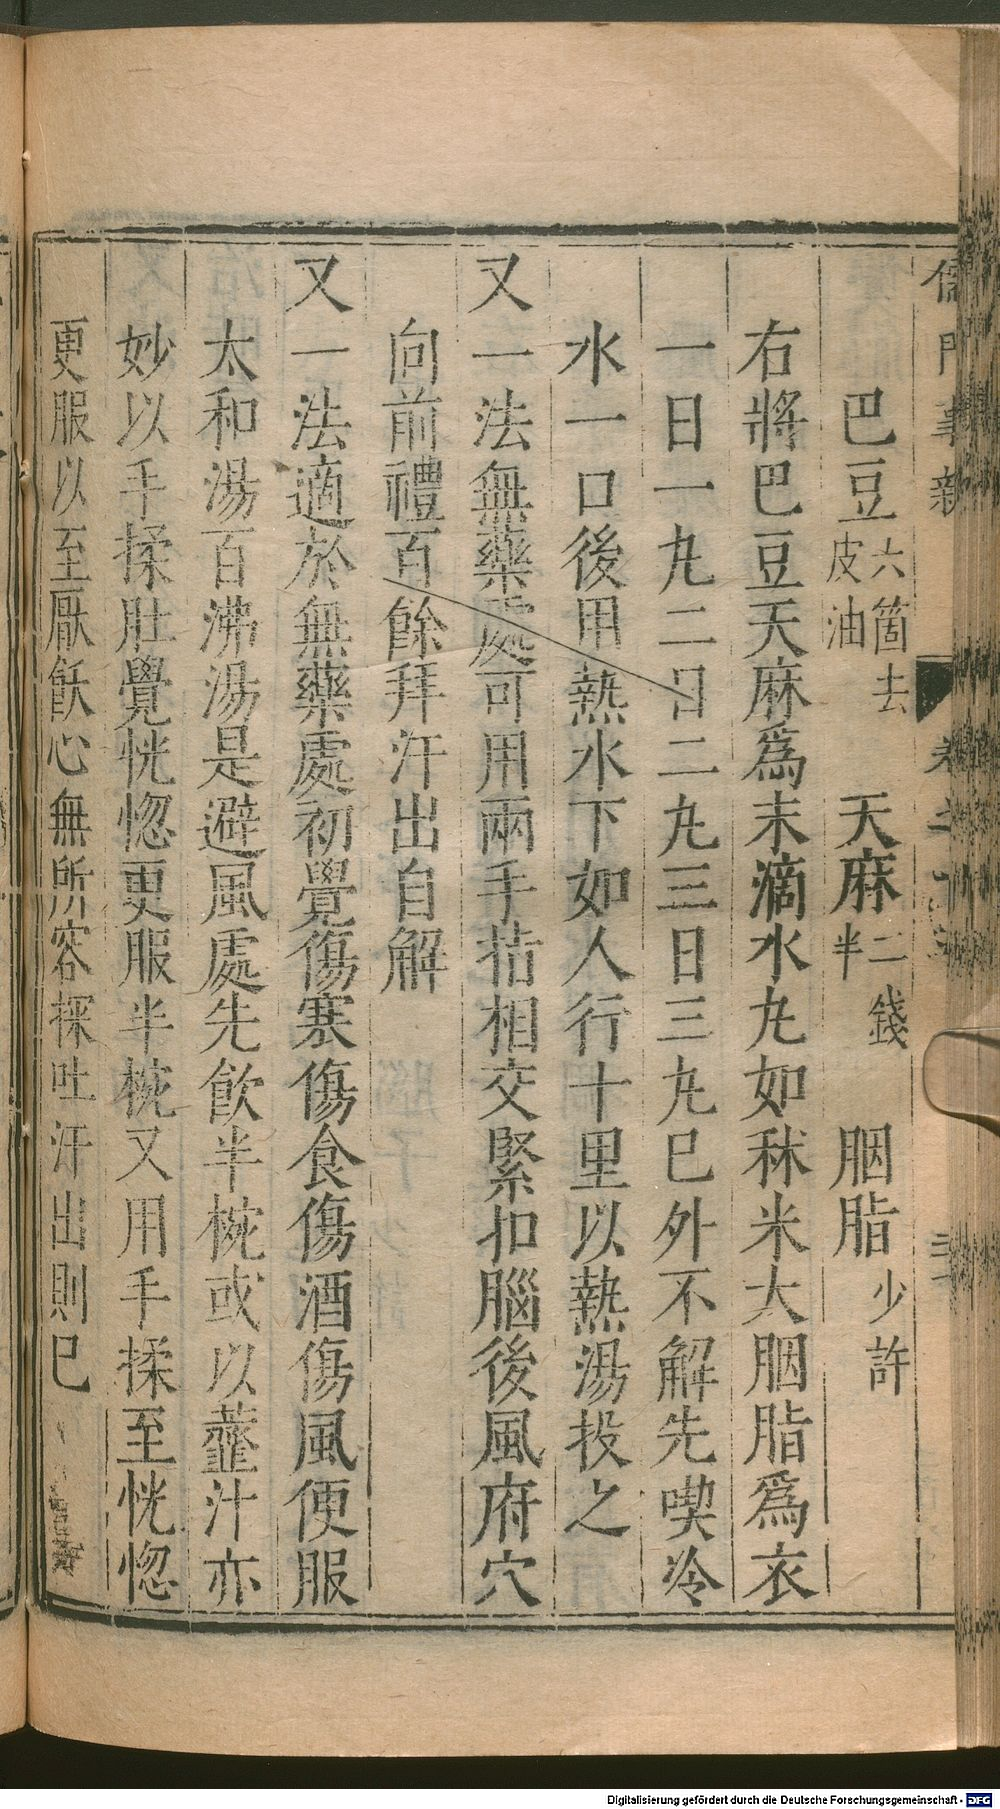 儒門事親
巴豆六箇去皮油 天麻二錢半 胭脂少許
右將巴豆天麻爲末滴水丸如秫米大胭脂爲衣
一日一丸二日二丸三日三丸已外不解先喫冷
水一口後用熱水下如人行十里以熱湯投之
又一法無藥處可用兩手指相交緊扣腦後風府穴
向前禮百餘拜汗出自解
又一法適於無藥處初覺傷寒傷食傷酒傷風便服
太和湯百沸湯是避風處先飲半椀或以虀汁亦
妙以手揉肚覺恍惚更服半椀又用手揉至恍惚
更服以至厭飫心無所容探吐汗出則已
Digitalisierung gefördert durch die Deutsche Forschungsgemeinschaft - DFG